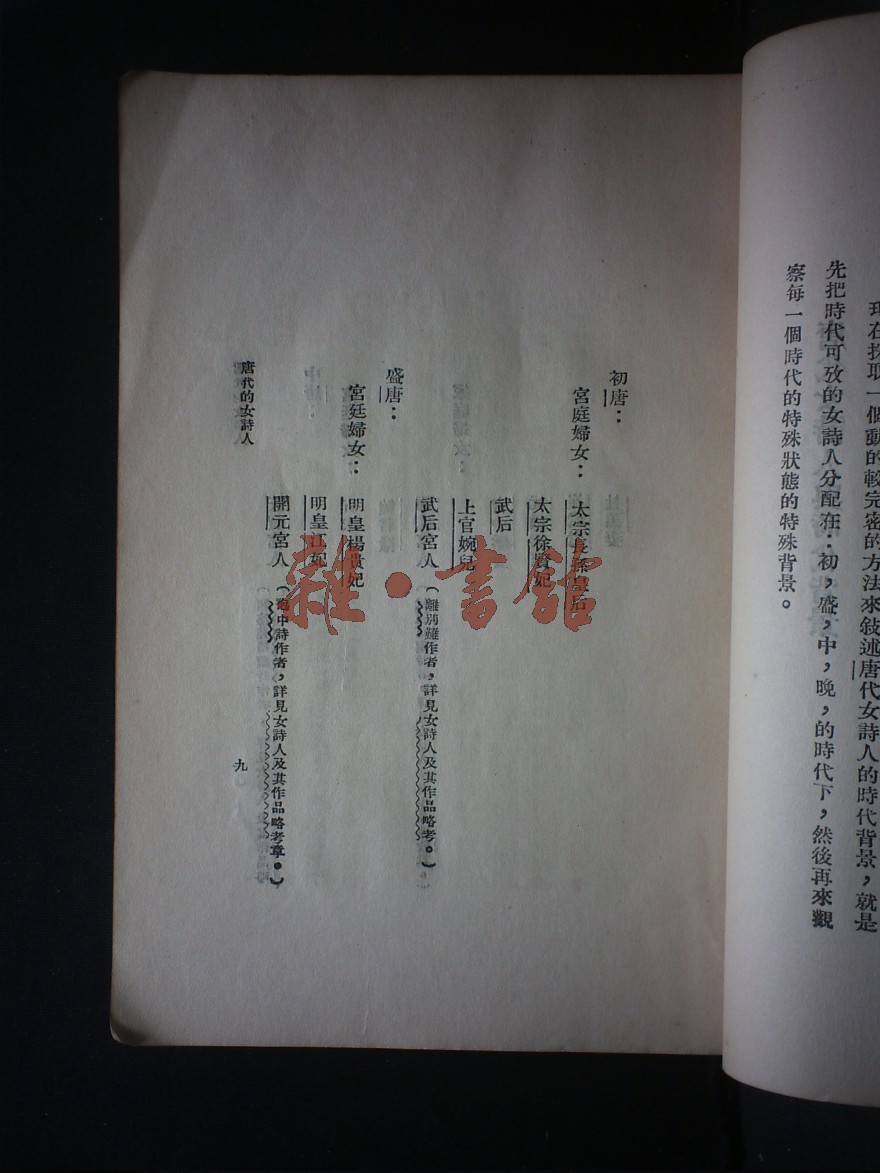 現在採取一個動的較完密的方法來敍述唐代女詩人的時代背景，就是
先把時代可攷的女詩人分配在：初，盛，中，晚，的時代下，然後再來觀
察每一個時代的特殊狀態的特殊背景。
初唐：
宮庭婦女：太宗長孫皇后
太宗徐賢妃
武后
上官婉兒
武后宮人（離別難作者，詳見女詩人及其作品略考。）
盛唐：
宮廷婦女：明皇楊貴妃
明皇江妃
開元宮人（袍中詩作者，詳見女詩人及其作品略考章。）
唐代的女詩人
九
雜·書館